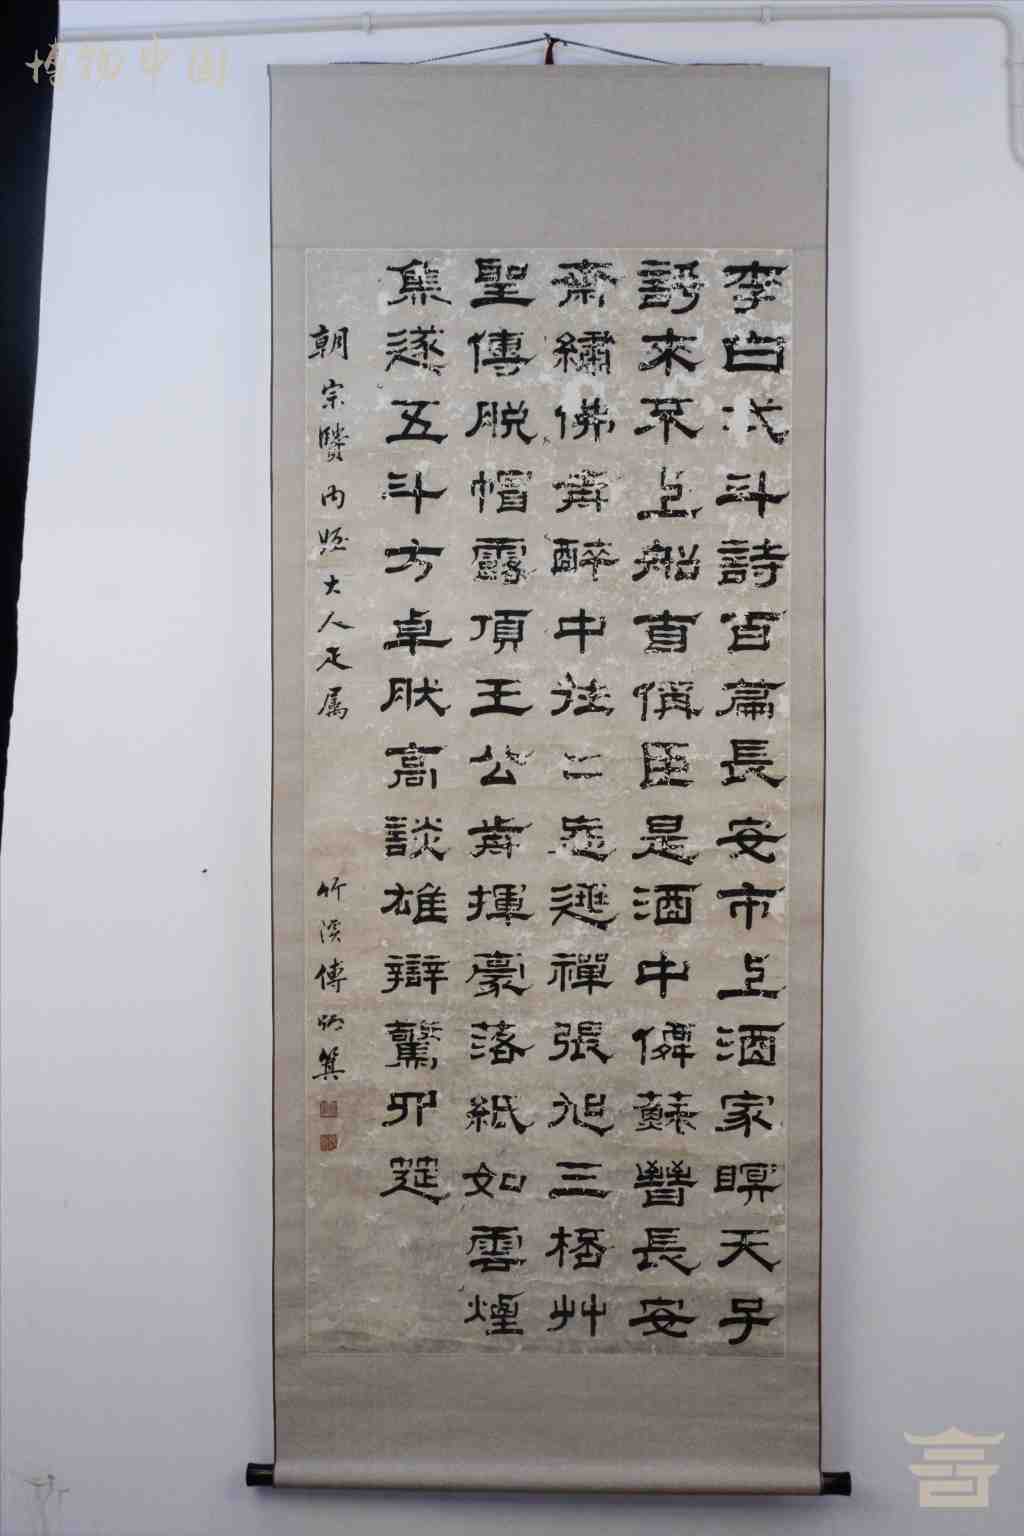 博物中国
李白弌斗詩百篇長安市上酒家瞑天子
謼來不上船自偁臣是酒中僊蘇晉長安
齋繡佛前醉中往二㤅逃禪張旭三桮艸
聖傳脫帽露頂王公前揮豪落紙如雲煙
焦遂五斗方卓肰高談雄辯驚四筵
朝宗賢內姪大人正屬
竹溪傅炳箕